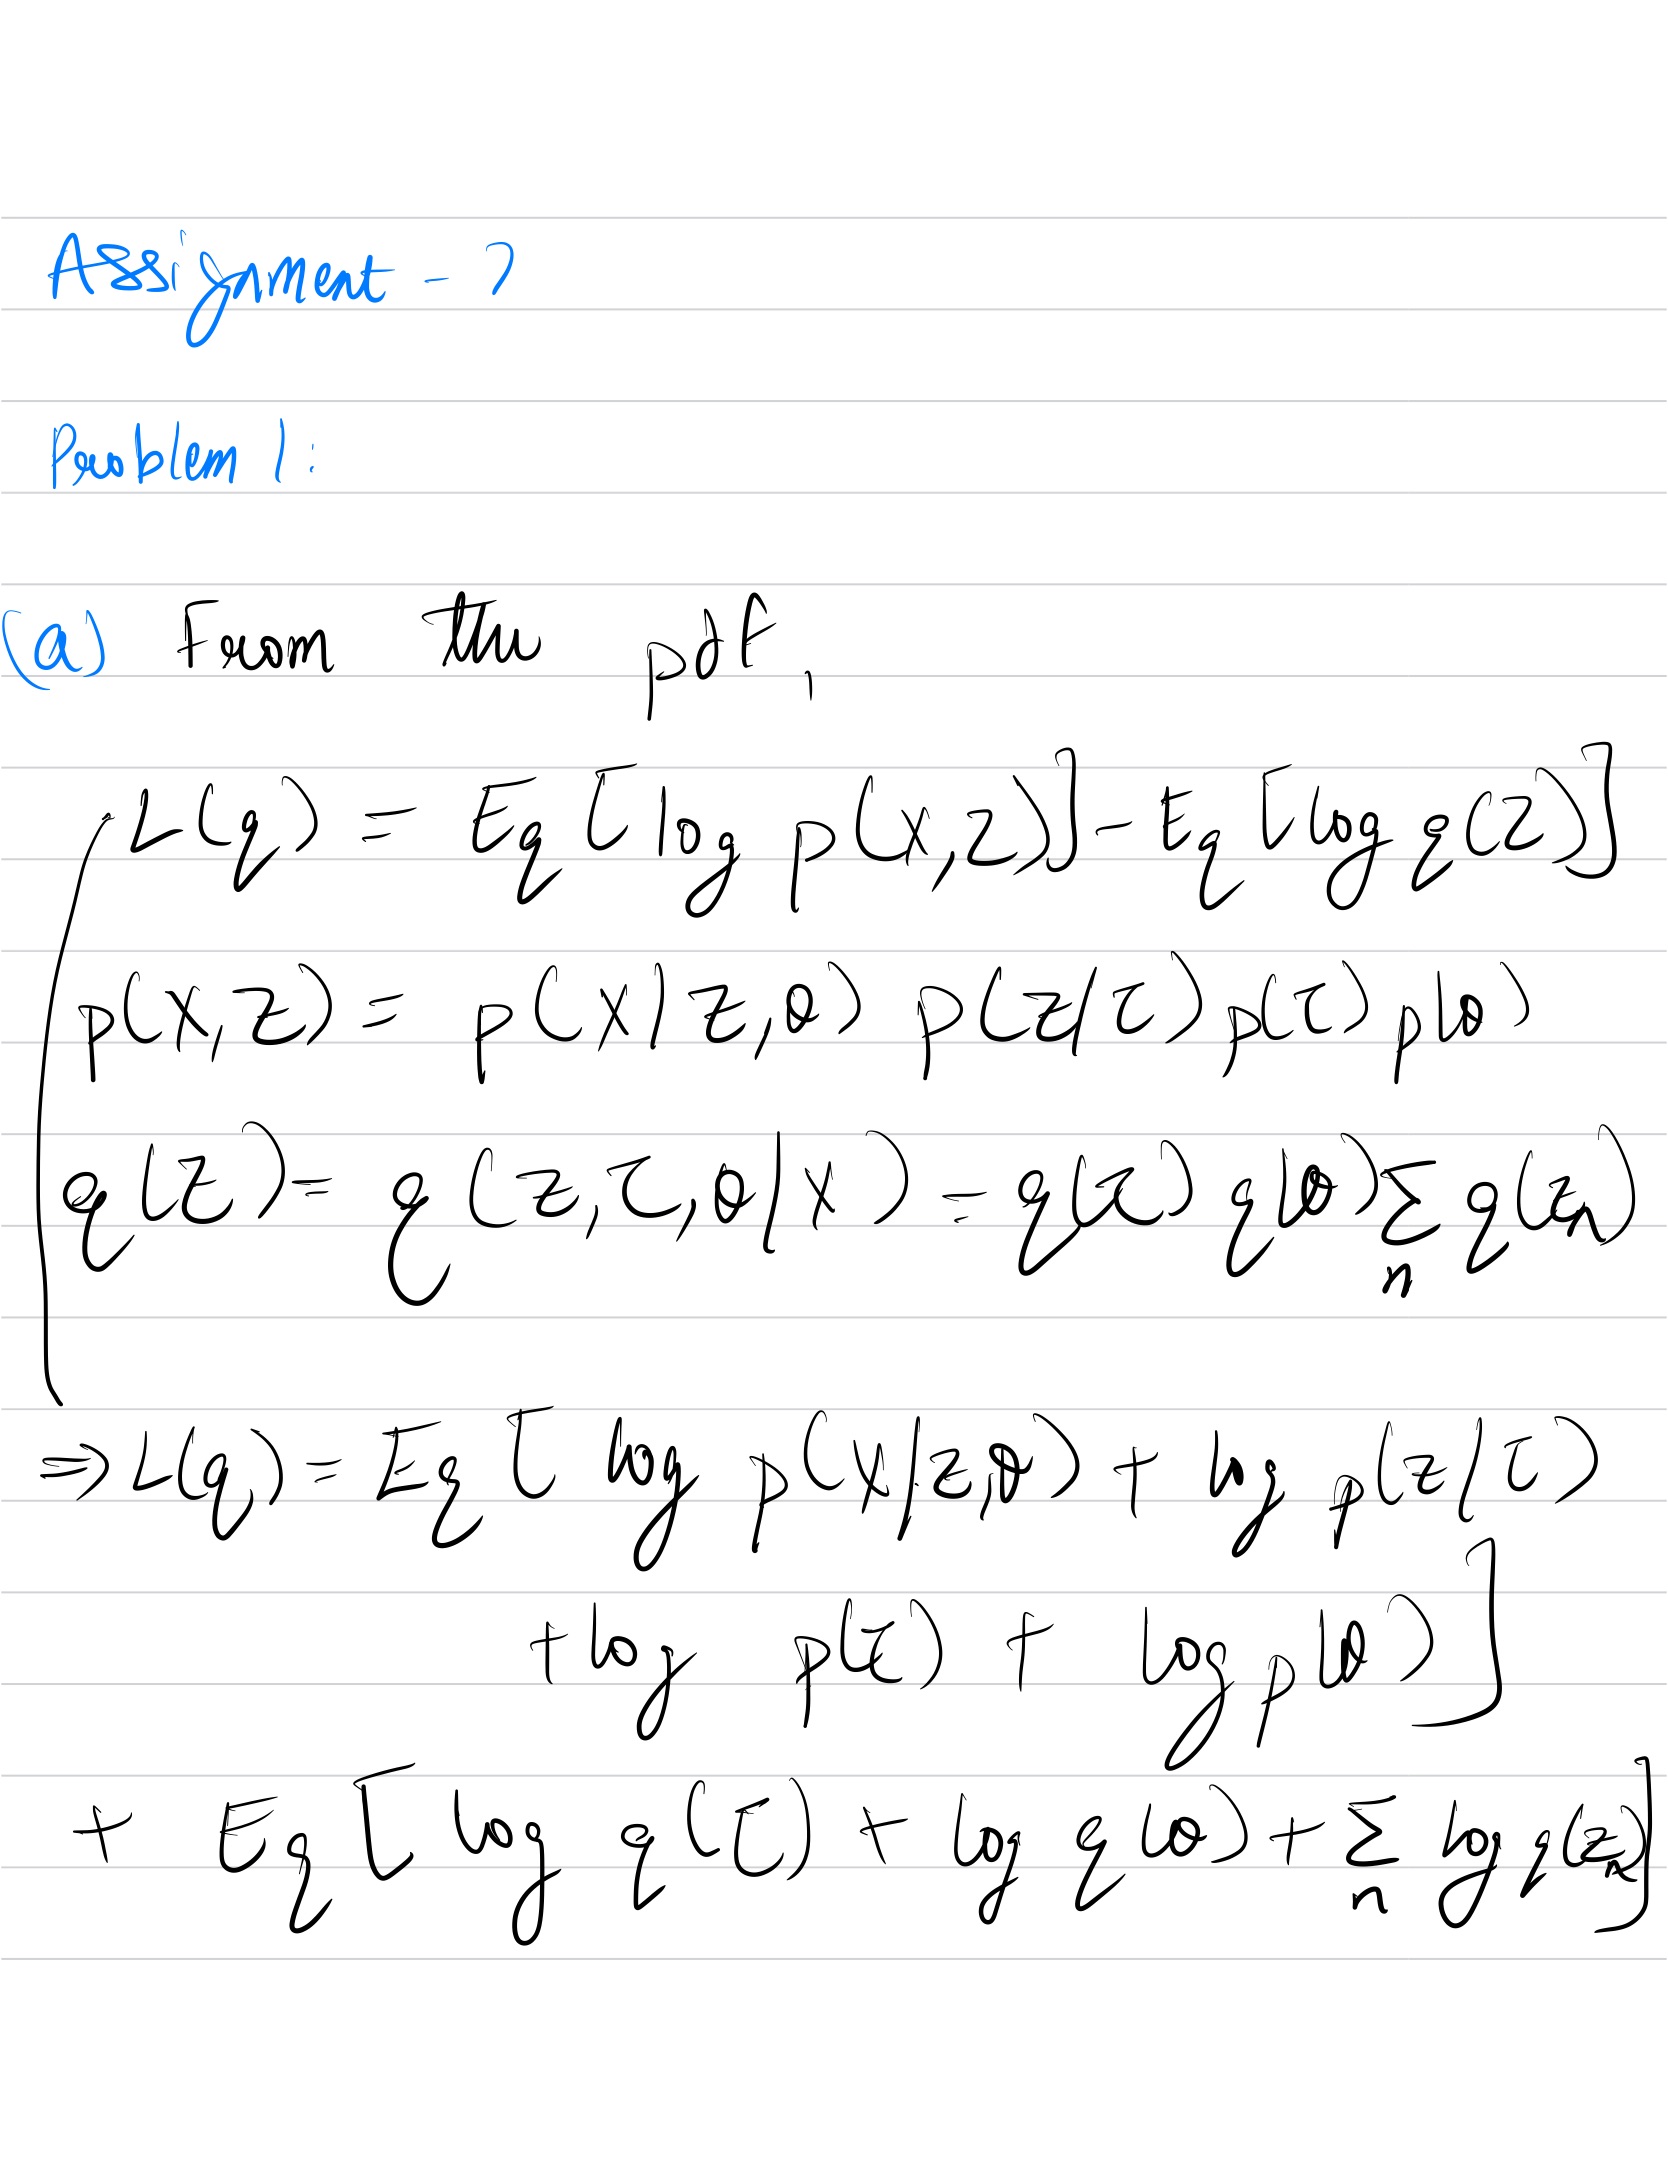 Assignment - 7
Problem 1:
(a) From the pdf,
L(q) = Eq [log p(X,Z)] - Eq [log q(Z)]
p(X,Z) = p(X|Z,θ) p(Z/τ) p(τ) p(θ)
q(Z) = q(Z,τ,θ|X) = q(τ) q(θ) Σ q(zn)
n
⇒ L(q) = Eq [ log p(X/Z,θ) + log p(Z/τ)
+ log p(τ) + log p(θ) ]
+ Eq [ log q(τ) + log q(θ) + Σ log q(zn) ]
n